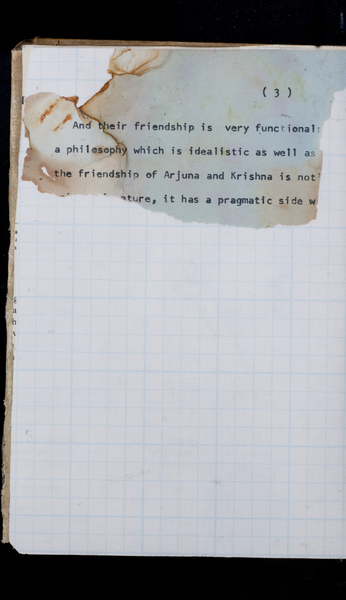 (3)
And their friendship is very functional:
a philosophy which is idealistic as well as
the friendship of Arjuna and Krishna is not
ature, it has a pragmatic side w